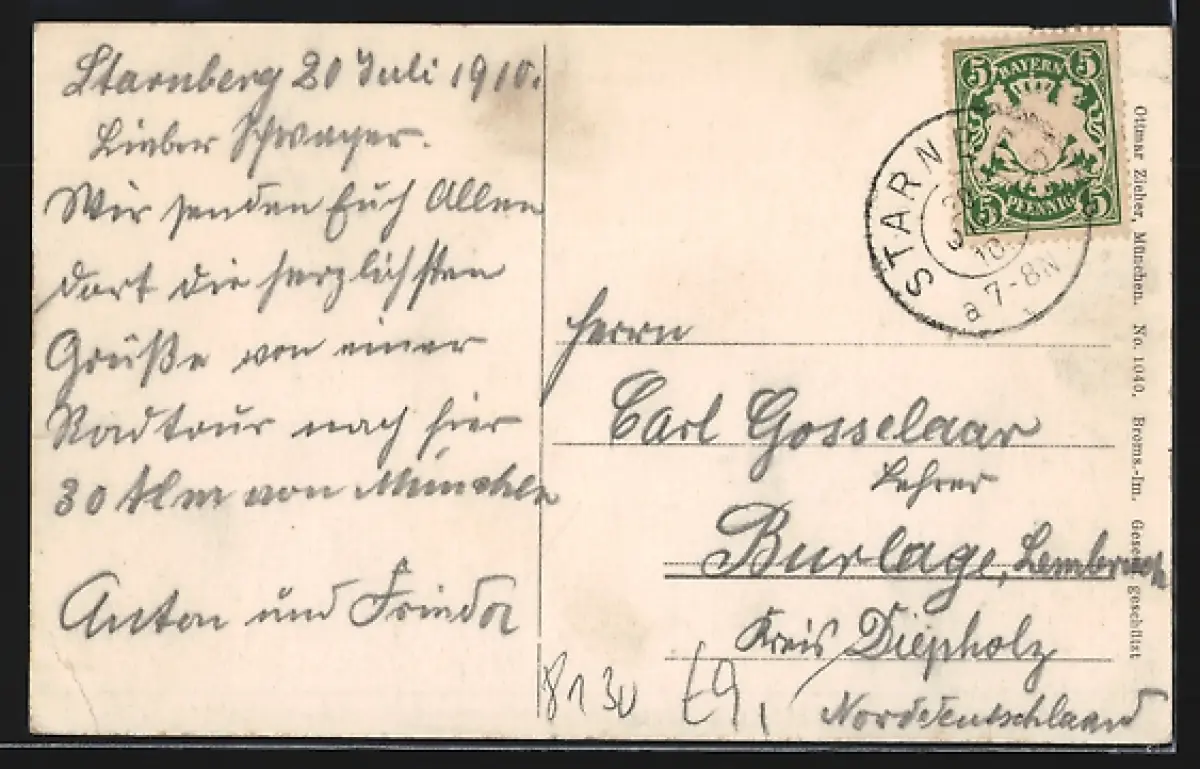 Starnberg 20 Juli 1910.
Lieber Schwager.
Wir senden Euch Allen
dort die herzlichsten
Grüße von einer
Radtour nach hier
30 klm von München
Anton und Frieda
BAYERN
5 5
5 PFENNIG 5
STARNBERG
10
a 7-8N
Herrn
Carl Gosselaar
Lehrer
Burlage, Lembruch
Kreis Diepholz
Norddeutschlaand
8130
Ottmar Zieher, München. No. 1040. Broms.-Im. Gesetzl. geschützt